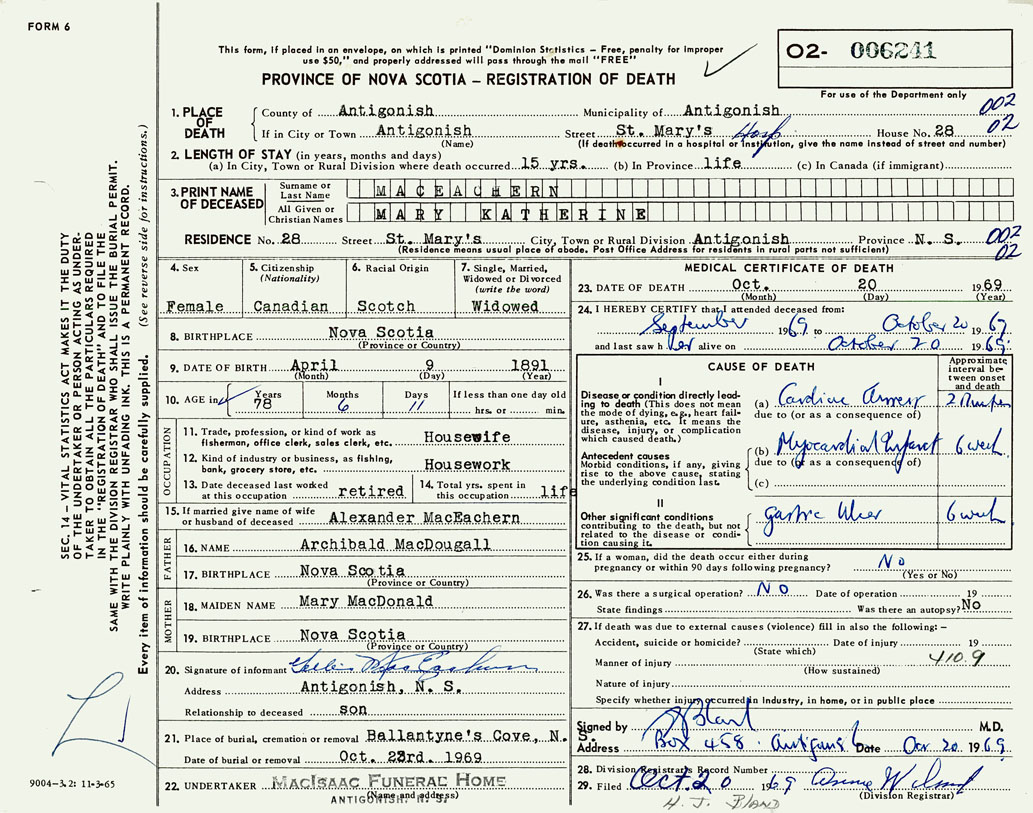 FORM 6
This form, if placed in an envelope, on which is printed "Dominion Statistics – Free, penalty for improper
use $50," and properly addressed will pass through the mail "FREE"
PROVINCE OF NOVA SCOTIA – REGISTRATION OF DEATH
02- 006241
For use of the Department only
SEC. 14 – VITAL STATISTICS ACT MAKES IT THE DUTY
OF THE UNDERTAKER OR PERSON ACTING AS UNDER-
TAKER TO OBTAIN ALL THE PARTICULARS REQUIRED
IN THE "REGISTRATION OF DEATH" AND TO FILE THE
SAME WITH THE DIVISION REGISTRAR WHO SHALL ISSUE THE BURIAL PERMIT.
WRITE PLAINLY WITH UNFADING INK. THIS IS A PERMANENT RECORD.
Every item of information should be carefully supplied. (See reverse side for instructions.)
1. PLACE OF DEATH
County of Antigonish Municipality of Antigonish 002
If in City or Town Antigonish Street St. Mary's Hosp House No. 28 02
(Name) (If death occurred in a hospital or institution, give the name instead of street and number)
2. LENGTH OF STAY (in years, months and days)
(a) In City, Town or Rural Division where death occurred 15 yrs. (b) In Province life (c) In Canada (if immigrant)
3. PRINT NAME OF DECEASED
Surname or Last Name MACEACHERN
All Given or Christian Names MARY KATHERINE
RESIDENCE No. 28 Street St. Mary's City, Town or Rural Division Antigonish Province N. S. 002
(Residence means usual place of abode. Post Office Address for residents in rural parts not sufficient) 02
4. Sex
Female
5. Citizenship
(Nationality)
Canadian
6. Racial Origin
Scotch
7. Single, Married,
Widowed or Divorced
(write the word)
Widowed
8. BIRTHPLACE Nova Scotia
(Province or Country)
9. DATE OF BIRTH April 9 1891
(Month) (Day) (Year)
10. AGE in Years 78 Months 6 Days 11 If less than one day old
hrs. or min.
OCCUPATION
11. Trade, profession, or kind of work as
fisherman, office clerk, sales clerk, etc. Housewife
12. Kind of industry or business, as fishing,
bank, grocery store, etc. Housework
13. Date deceased last worked
at this occupation retired
14. Total yrs. spent in
this occupation life
15. If married give name of wife
or husband of deceased Alexander MacEachern
FATHER
16. NAME Archibald MacDougall
17. BIRTHPLACE Nova Scotia
(Province or Country)
MOTHER
18. MAIDEN NAME Mary MacDonald
19. BIRTHPLACE Nova Scotia
(Province or Country)
20. Signature of informant
Address Antigonish, N. S.
Relationship to deceased son
21. Place of burial, cremation or removal Ballantyne's Cove, N. S.
Date of burial or removal Oct. 23rd. 1969
22. UNDERTAKER MACISAAC FUNERAL HOME
(Name and address)
ANTIGONISH, N. S.
9004–3.2: 11-3-65
MEDICAL CERTIFICATE OF DEATH
23. DATE OF DEATH Oct. 20 1969
(Month) (Day) (Year)
24. I HEREBY CERTIFY that I attended deceased from:
September 1969 to October 20 1969
and last saw her alive on October 20 1969:
CAUSE OF DEATH
Approximate
interval be-
tween onset
and death
I
Disease or condition directly lead-
ing to death (This does not mean
the mode of dying, e.g., heart fail-
ure, asthenia, etc. It means the
disease, injury, or complication
which caused death.)
(a) Cardiac Arrest 2
due to (or as a consequence of)
Antecedent causes
Morbid conditions, if any, giving
rise to the above cause, stating
the underlying condition last.
(b) Myocardial Infarct 6 week
due to (or as a consequence of)
(c)
II
Other significant conditions
contributing to the death, but not
related to the disease or condi-
tion causing it.
Gastric Ulcer 6 week
25. If a woman, did the death occur either during
pregnancy or within 90 days following pregnancy? No
(Yes or No)
26. Was there a surgical operation? NO Date of operation 19
State findings Was there an autopsy? No
27. If death was due to external causes (violence) fill in also the following: –
Accident, suicide or homicide? Date of injury 19
(State which)
Manner of injury 410.9
(How sustained)
Nature of injury
Specify whether injury occurred in industry, in home, or in public place
Signed by Bland M.D.
Address Box 458 Antigonish Date Oct 20 1969
28. Division Registrar's Record Number
29. Filed Oct. 20 1969
(Division Registrar)
H. J. BLAND